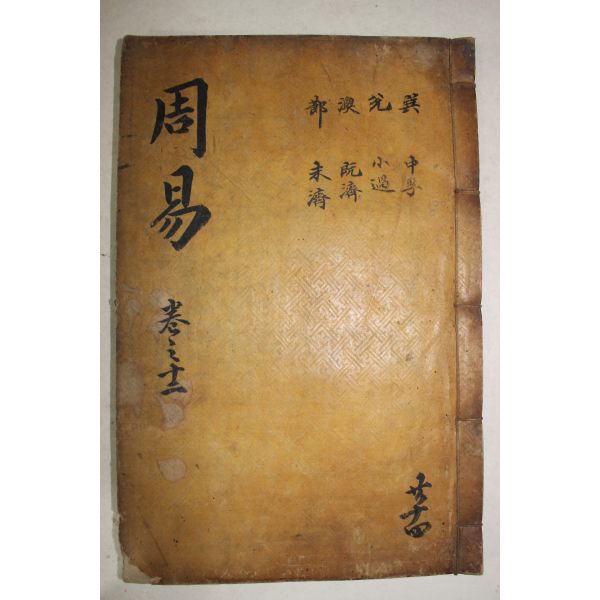 巽 中孚
兌 小過
渙 旣濟
節 未濟
周易
卷之十二
共十四